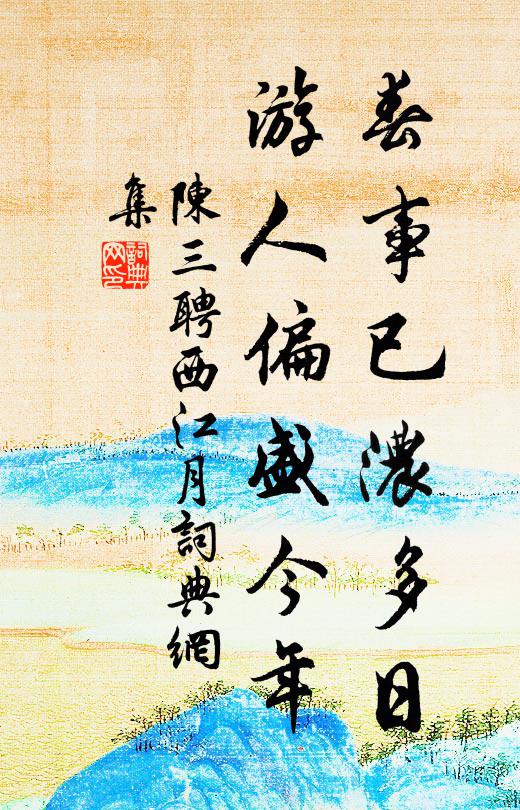 春事已濃多日
游人偏盛今年
陳三聘西江月詞典網
集
詞典
网印